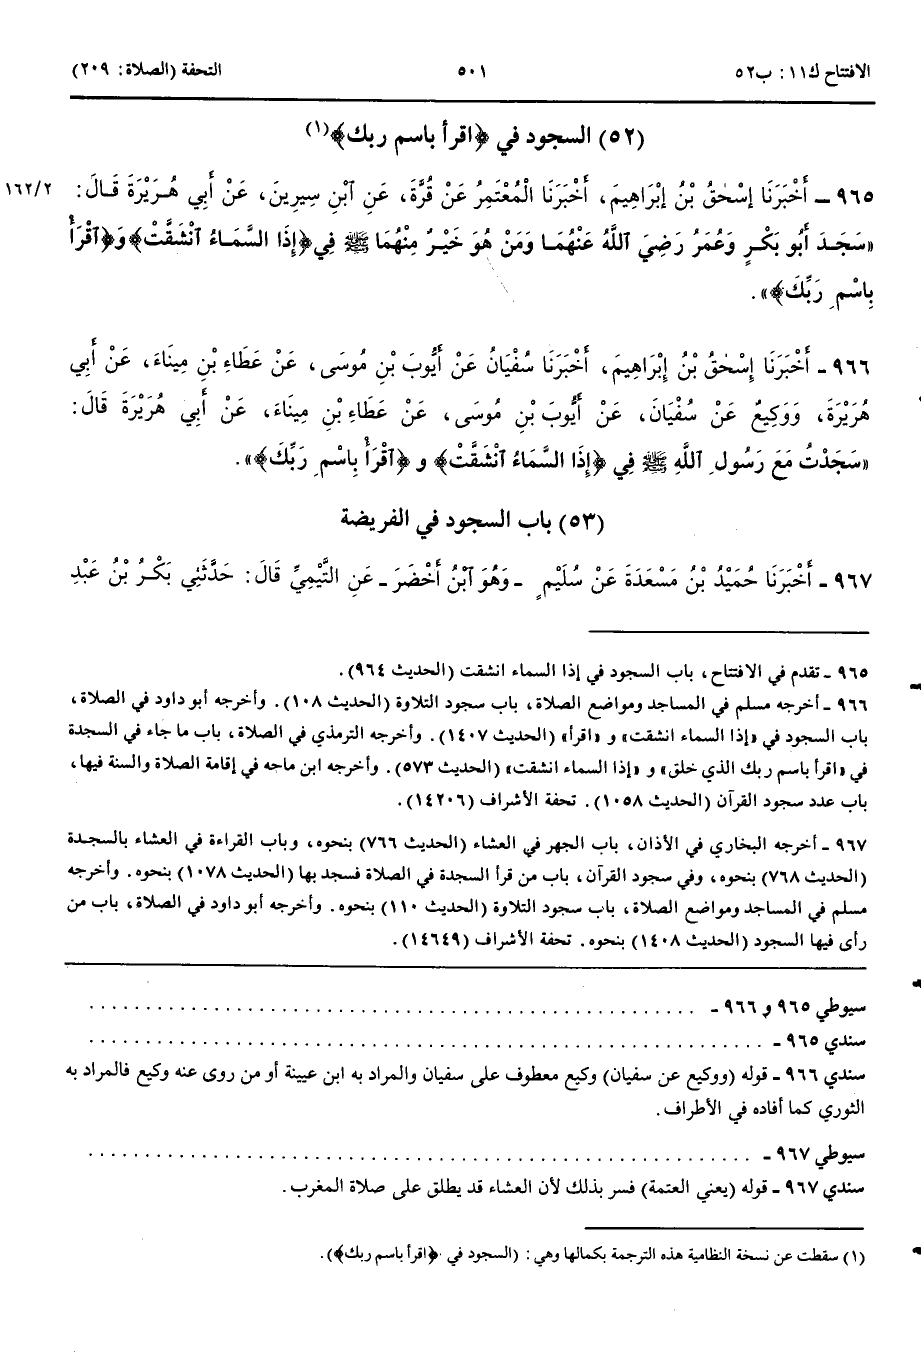 الافتتاح ك١١: ب٥٢ ٥٠١ التحفة (الصلاة: ٢٠٩)
(٥٢) السجود في ﴿اقرأ باسم ربك﴾(١)
٩٦٥ ــ أَخْبَرَنَا إِسْحٰقُ بْنُ إِبْرَاهِيمَ، أَخْبَرَنَا الْمُعْتَمِرُ عَنْ قُرَّةَ، عَنِ ٱبْنِ سِيرِينَ، عَنْ أَبِي هُرَيْرَةَ قَالَ: ١٦٢/٢
«سَجَدَ أَبُو بَكْرٍ وَعُمَرُ رَضِيَ ٱللَّهُ عَنْهُمَا وَمَنْ هُوَ خَيْرٌ مِنْهُمَا ﷺ فِي ﴿إِذَا السَّمَاءُ ٱنْشَقَّتْ﴾ وَ﴿ٱقْرَأْ
بِاسْمِ رَبِّكَ﴾».
٩٦٦ ـ أَخْبَرَنَا إِسْحٰقُ بْنُ إِبْرَاهِيمَ، أَخْبَرَنَا سُفْيَانُ عَنْ أَيُّوبَ بْنِ مُوسَى، عَنْ عَطَاءِ بْنِ مِينَاءَ، عَنْ أَبِي
هُرَيْرَةَ، وَوَكِيعٌ عَنْ سُفْيَانَ، عَنْ أَيُّوبَ بْنِ مُوسَى، عَنْ عَطَاءِ بْنِ مِينَاءَ، عَنْ أَبِي هُرَيْرَةَ قَالَ:
«سَجَدْتُ مَعَ رَسُولِ ٱللَّهِ ﷺ فِي ﴿إِذَا السَّمَاءُ ٱنْشَقَّتْ﴾ و ﴿ٱقْرَأْ بِاسْمِ رَبِّكَ﴾».
(٥٣) باب السجود في الفريضة
٩٦٧ ـ أَخْبَرَنَا حُمَيْدُ بْنُ مَسْعَدَةَ عَنْ سُلَيْمٍ ـ وَهُوَ ٱبْنُ أَخْضَرَ ـ عَنِ التَّيْمِيِّ قَالَ: حَدَّثَنِي بَكْرُ بْنُ عَبْدِ
٩٦٥ ـ تقدم في الافتتاح، باب السجود في إذا السماء انشقت (الحديث ٩٦٤).
٩٦٦ ـ أخرجه مسلم في المساجد ومواضع الصلاة، باب سجود التلاوة (الحديث ١٠٨). وأخرجه أبو داود في الصلاة،
باب السجود في «إذا السماء انشقت» و «اقرأ» (الحديث ١٤٠٧). وأخرجه الترمذي في الصلاة، باب ما جاء في السجدة
في «اقرأ باسم ربك الذي خلق» و «إذا السماء انشقت» (الحديث ٥٧٣). وأخرجه ابن ماجه في إقامة الصلاة والسنة فيها،
باب عدد سجود القرآن (الحديث ١٠٥٨). تحفة الأشراف (١٤٢٠٦).
٩٦٧ ـ أخرجه البخاري في الأذان، باب الجهر في العشاء (الحديث ٧٦٦) بنحوه، وباب القراءة في العشاء بالسجدة
(الحديث ٧٦٨) بنحوه، وفي سجود القرآن، باب من قرأ السجدة في الصلاة فسجد بها (الحديث ١٠٧٨) بنحوه. وأخرجه
مسلم في المساجد ومواضع الصلاة، باب سجود التلاوة (الحديث ١١٠) بنحوه. وأخرجه أبو داود في الصلاة، باب من
رأى فيها السجود (الحديث ١٤٠٨) بنحوه. تحفة الأشراف (١٤٦٤٩).
سيوطي ٩٦٥ و ٩٦٦ ـ . . . . . . . . . . . . . . . . . . . . . . . . . . . . . . . . . . . . . . . .
سندي ٩٦٥ ـ . . . . . . . . . . . . . . . . . . . . . . . . . . . . . . . . . . . . . . . . . . . .
سندي ٩٦٦ ـ قوله (ووكيع عن سفيان) وكيع معطوف على سفيان والمراد به ابن عيينة أو من روى عنه وكيع فالمراد به
الثوري كما أفاده في الأطراف.
سيوطي ٩٦٧ ـ . . . . . . . . . . . . . . . . . . . . . . . . . . . . . . . . . . . . . . . . . . . .
سندي ٩٦٧ ـ قوله (يعني العتمة) فسر بذلك لأن العشاء قد يطلق على صلاة المغرب.
(١) سقطت عن نسخة النظامية هذه الترجمة بكمالها وهي: (السجود في ﴿اقرأ باسم ربك﴾).